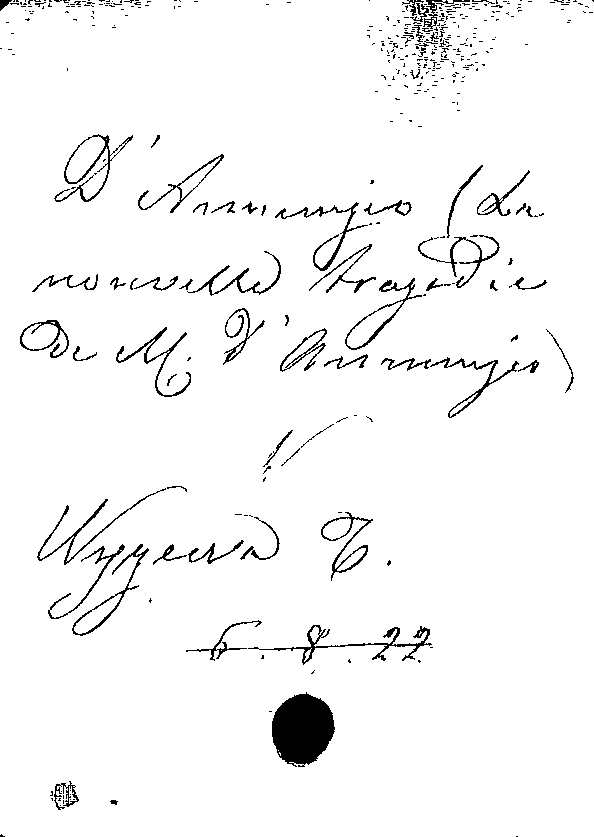 D'Annunzio (La
nouvelle tragedie
de M. d'Annunzio)
T.
6.8.22